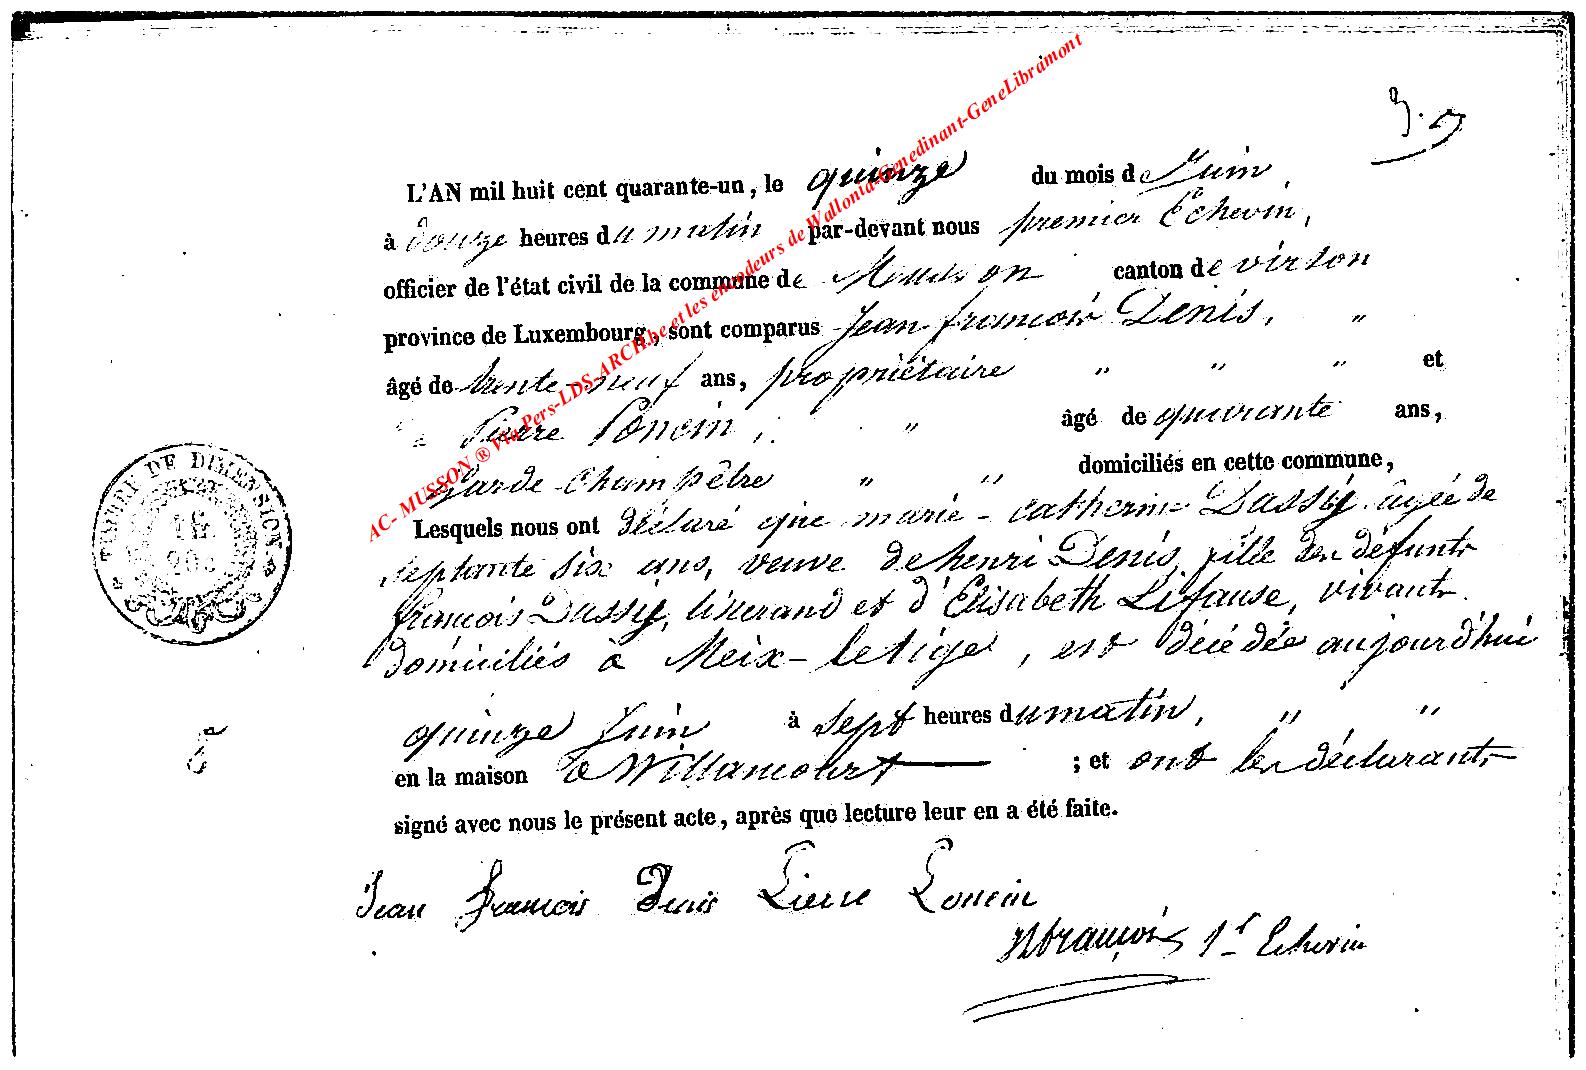 L'AN mil huit cent quarante-un, le quinze du mois de Juin,
à douze heures du matin par-devant nous premier Echevin,
officier de l'état civil de la commune de Musson canton de virton
province de Luxembourg, sont comparus Jean françois Denis, "
âgé de trente-neuf ans, propriétaire " " " et
Pierre Poncin, " âgé de quarante ans,
Garde-Champêtre " " domiciliés en cette commune,
Lesquels nous ont déclaré que marie-catherine Dassÿ âgée de
septante six ans, veuve de henri Denis, fille des défunts
françois Dassÿ, tisserand et d'Elisabeth Lifause, vivants
domiciliés à Meix-letige, est décédée aujourd'hui
quinze Juin à sept heures du matin, " "
en la maison à Willancourt ; et ont les déclarants
signé avec nous le présent acte, après que lecture leur en a été faite.
Jean François Denis Pierre Poncin
françois 1r Echevin
TIMBRE DE DIMENSION
AC- MUSSON ® Via Pers-LDS-ARCH.be et les encodeurs de Wallonia-Genedinant-GeneLibramont